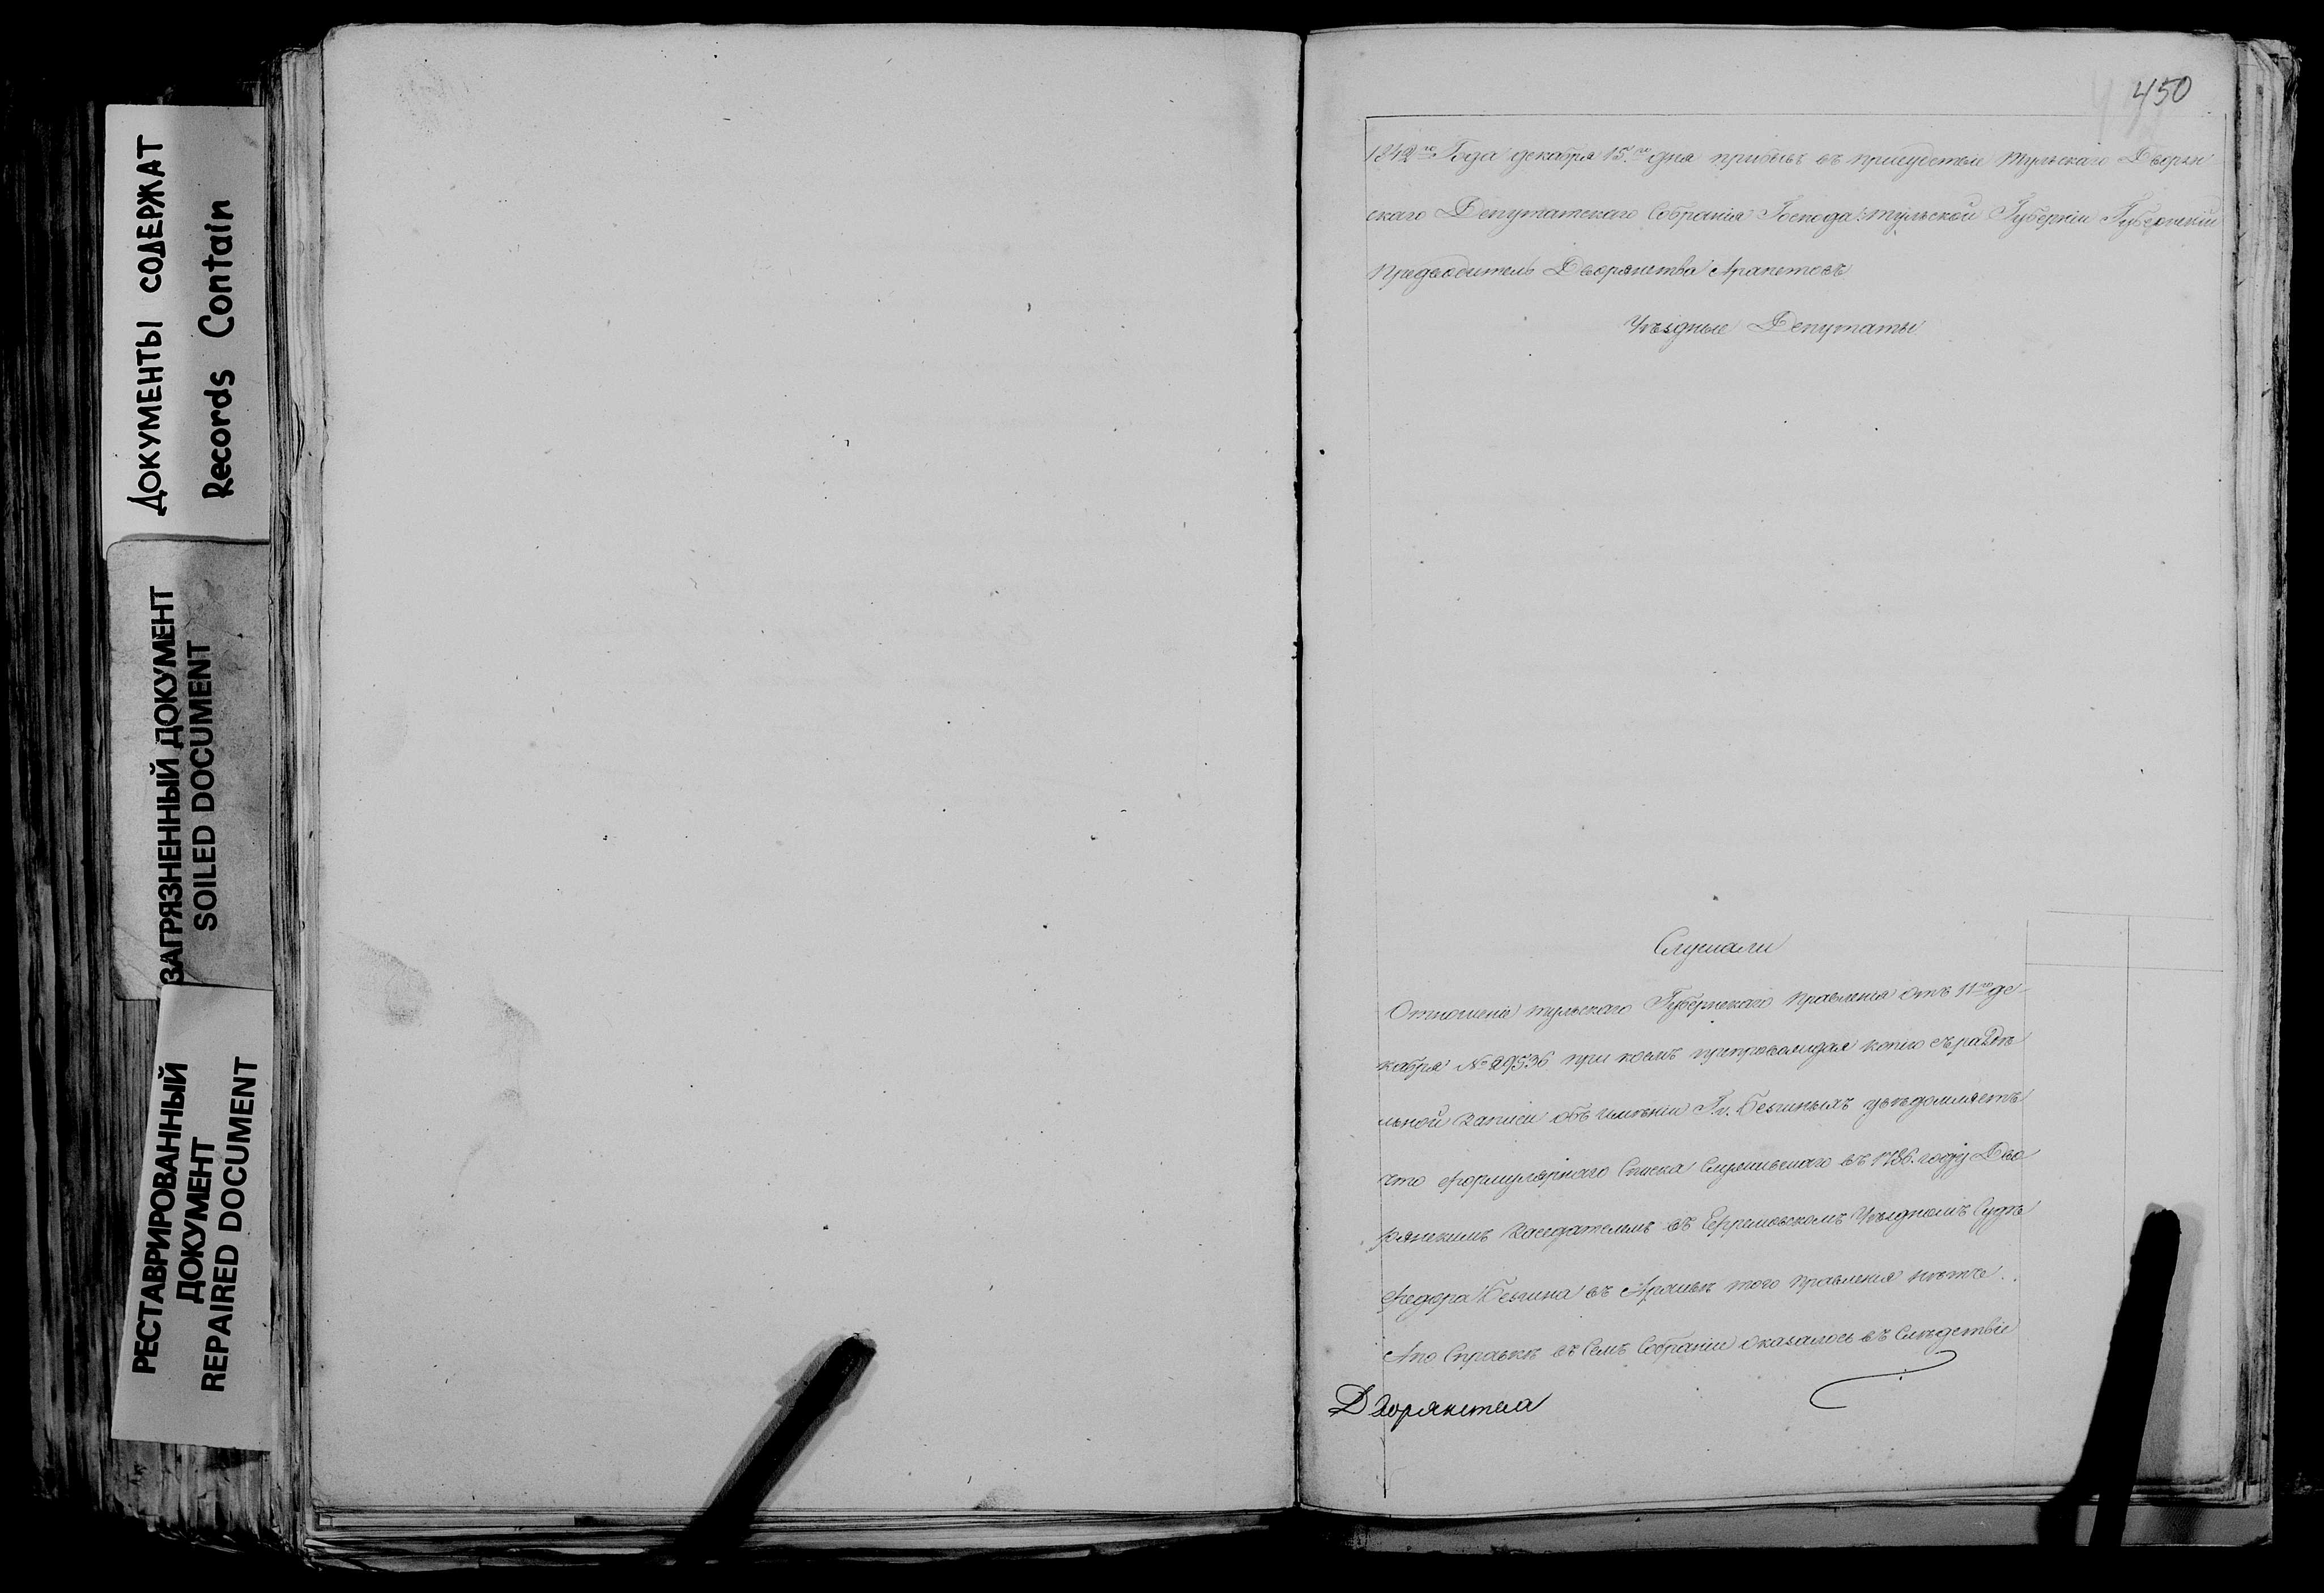 ДОКУМЕНТЫ СОДЕРЖАТ
Records Contain
ЗАГРЯЗНЕННЫЙ ДОКУМЕНТ
SOILED DOCUMENT
РЕСТАВРИРОВАННЫЙ
ДОКУМЕНТ
REPAIRED DOCUMENT
450
1842го Года декабря 15.го дня прибывъ въ присудствіе Тульскаго Дворян
скаго Депутатскаго Собранія Господа: Тульской Губерніи Губернскій
Предводитель Дворянства Арапетовъ
Уѣздные Депутаты
Слушали
Отношеніе Тульскаго Губернскаго Правленія отъ 11го де-
кабря № 29536 при коемъ препровождая копію съ раздѣ
льной записи объ имѣніи Гг. уѣдомляетъ
что формулярнаго Списка Служившаго въ 1786. году Дво
рянскимъ Засѣдателемъ въ Ефремовскомъ Уѣздномъ Судѣ
Федора въ Архивѣ того Правленія нѣтъ.
А по Справкѣ въ Семъ Собраніи Оказалось въ Слѣдствіе
Дворянства